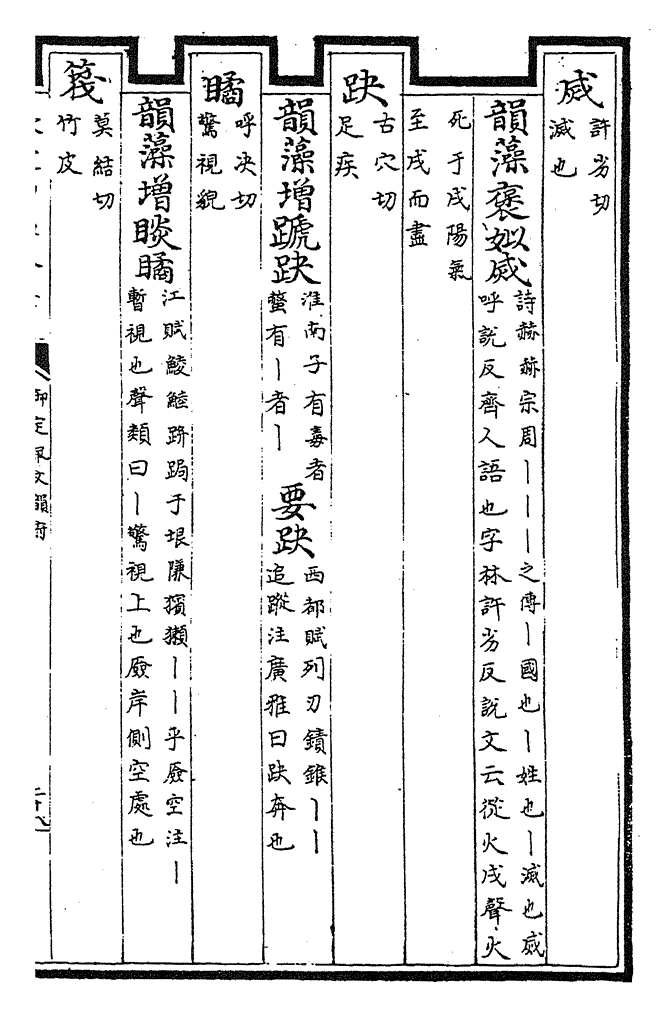 烕
許劣切
滅也
韻藻褒姒烕
詩赫赫宗周丨丨丨之傳丨國也丨姓也丨滅也烕
呼說反齊人語也字林許劣反說文云從火戌聲火
死于戌陽氣
至戌而盡
趹
古穴切
足疾
韻藻增蹏趹
淮南子有毒者
螫有丨者丨
要趹
西都賦列刃鑽鍭丨丨
追蹤注廣雅曰趹奔也
瞲
呼决切
驚視貌
韻藻增睒瞲
江賦鯪鯥跻跼于垠隒獱獺丨丨乎厱空注丨
暫視也聲類曰丨驚視上也厱岸側空處也
篾
莫結切
竹皮
御定佩文韻府